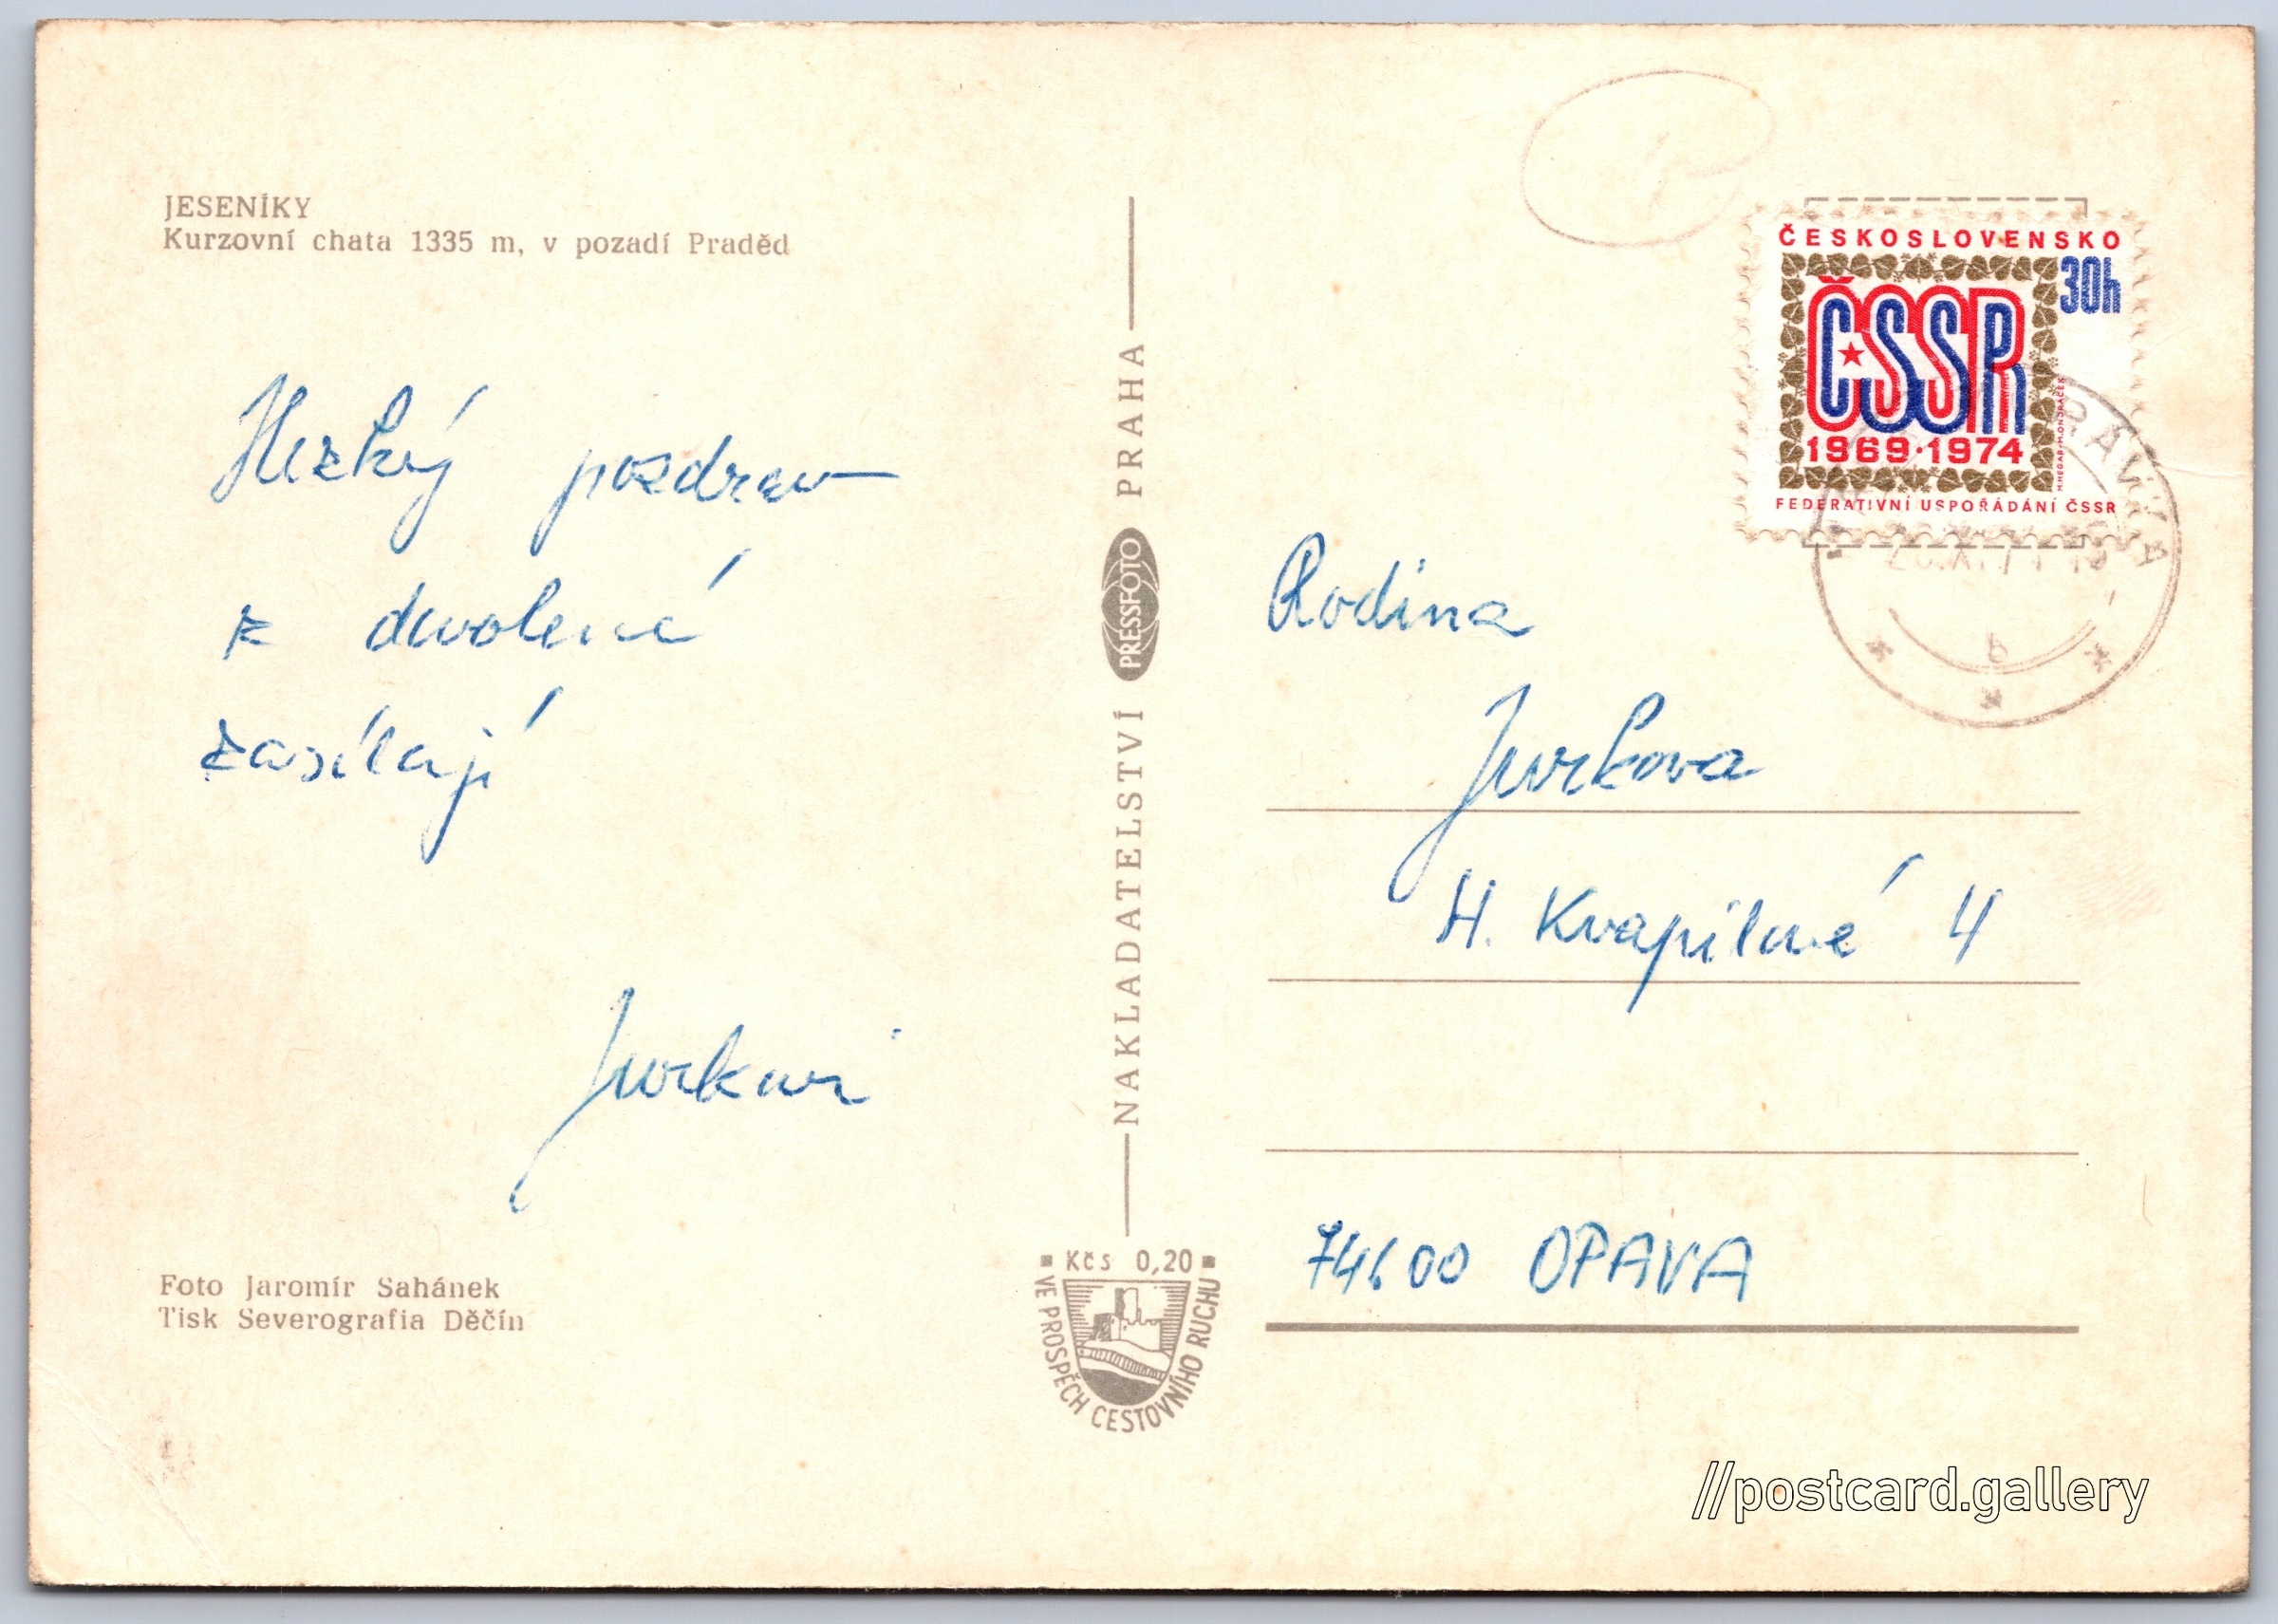 JESENÍKY
Kurzovní chata 1335 m, v pozadí Praděd
Hezký pozdrav
z dovolené
zasílají
Jurkovi
Foto Jaromír Sahánek
Tisk Severografia Děčín
NAKLADATELSTVÍ PRESSFOTO PRAHA
Kčs 0,20
VE PROSPĚCH CESTOVNÍHO RUCHU
ČESKOSLOVENSKO
30h
ČSSR
1969·1974
FEDERATIVNÍ USPOŘÁDÁNÍ ČSSR
Rodina
Jurkova
H. Kvapilové 4
74600 OPAVA
//postcard.gallery